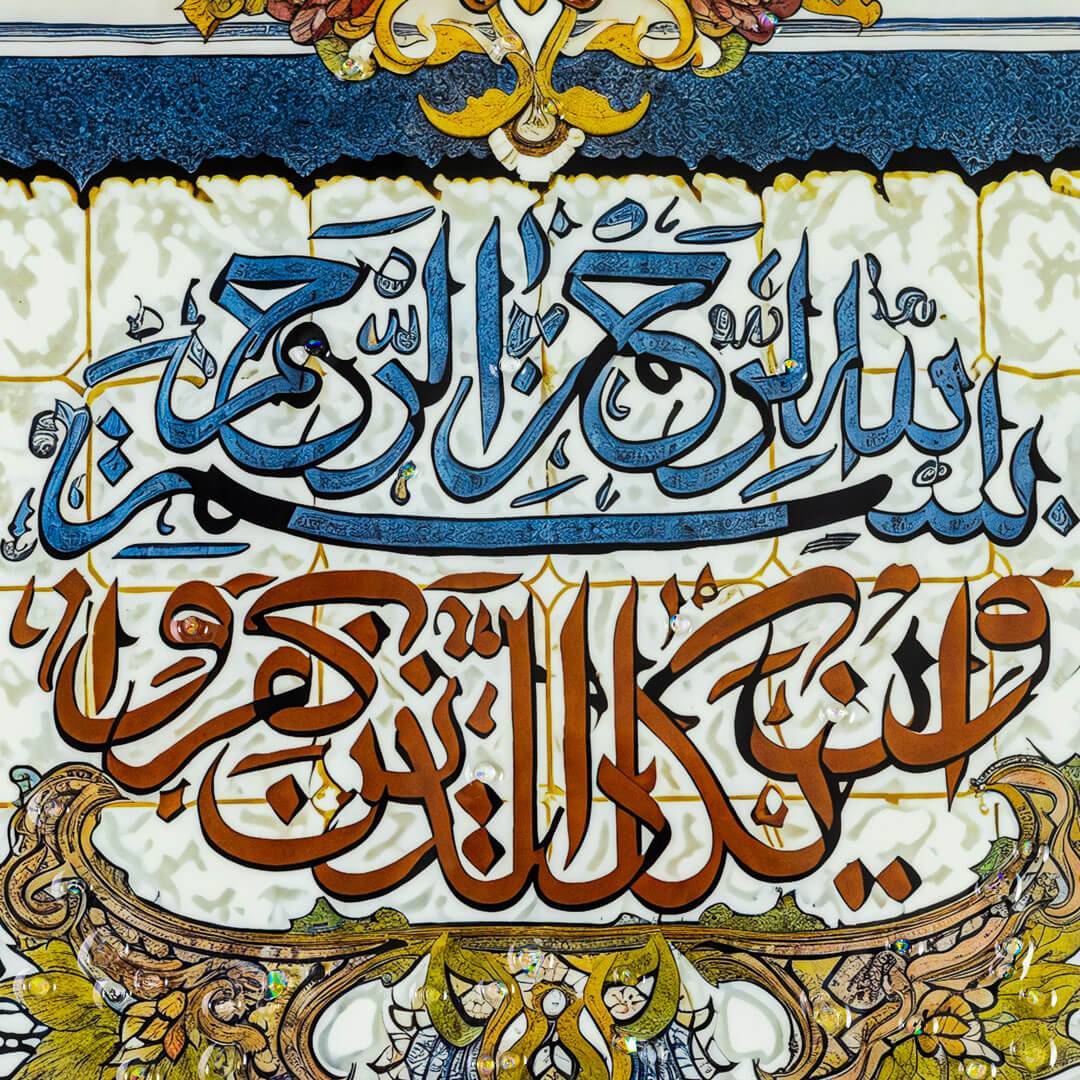 بسم الله الرحمن الرحيم
وان يكاد الذين كفروا